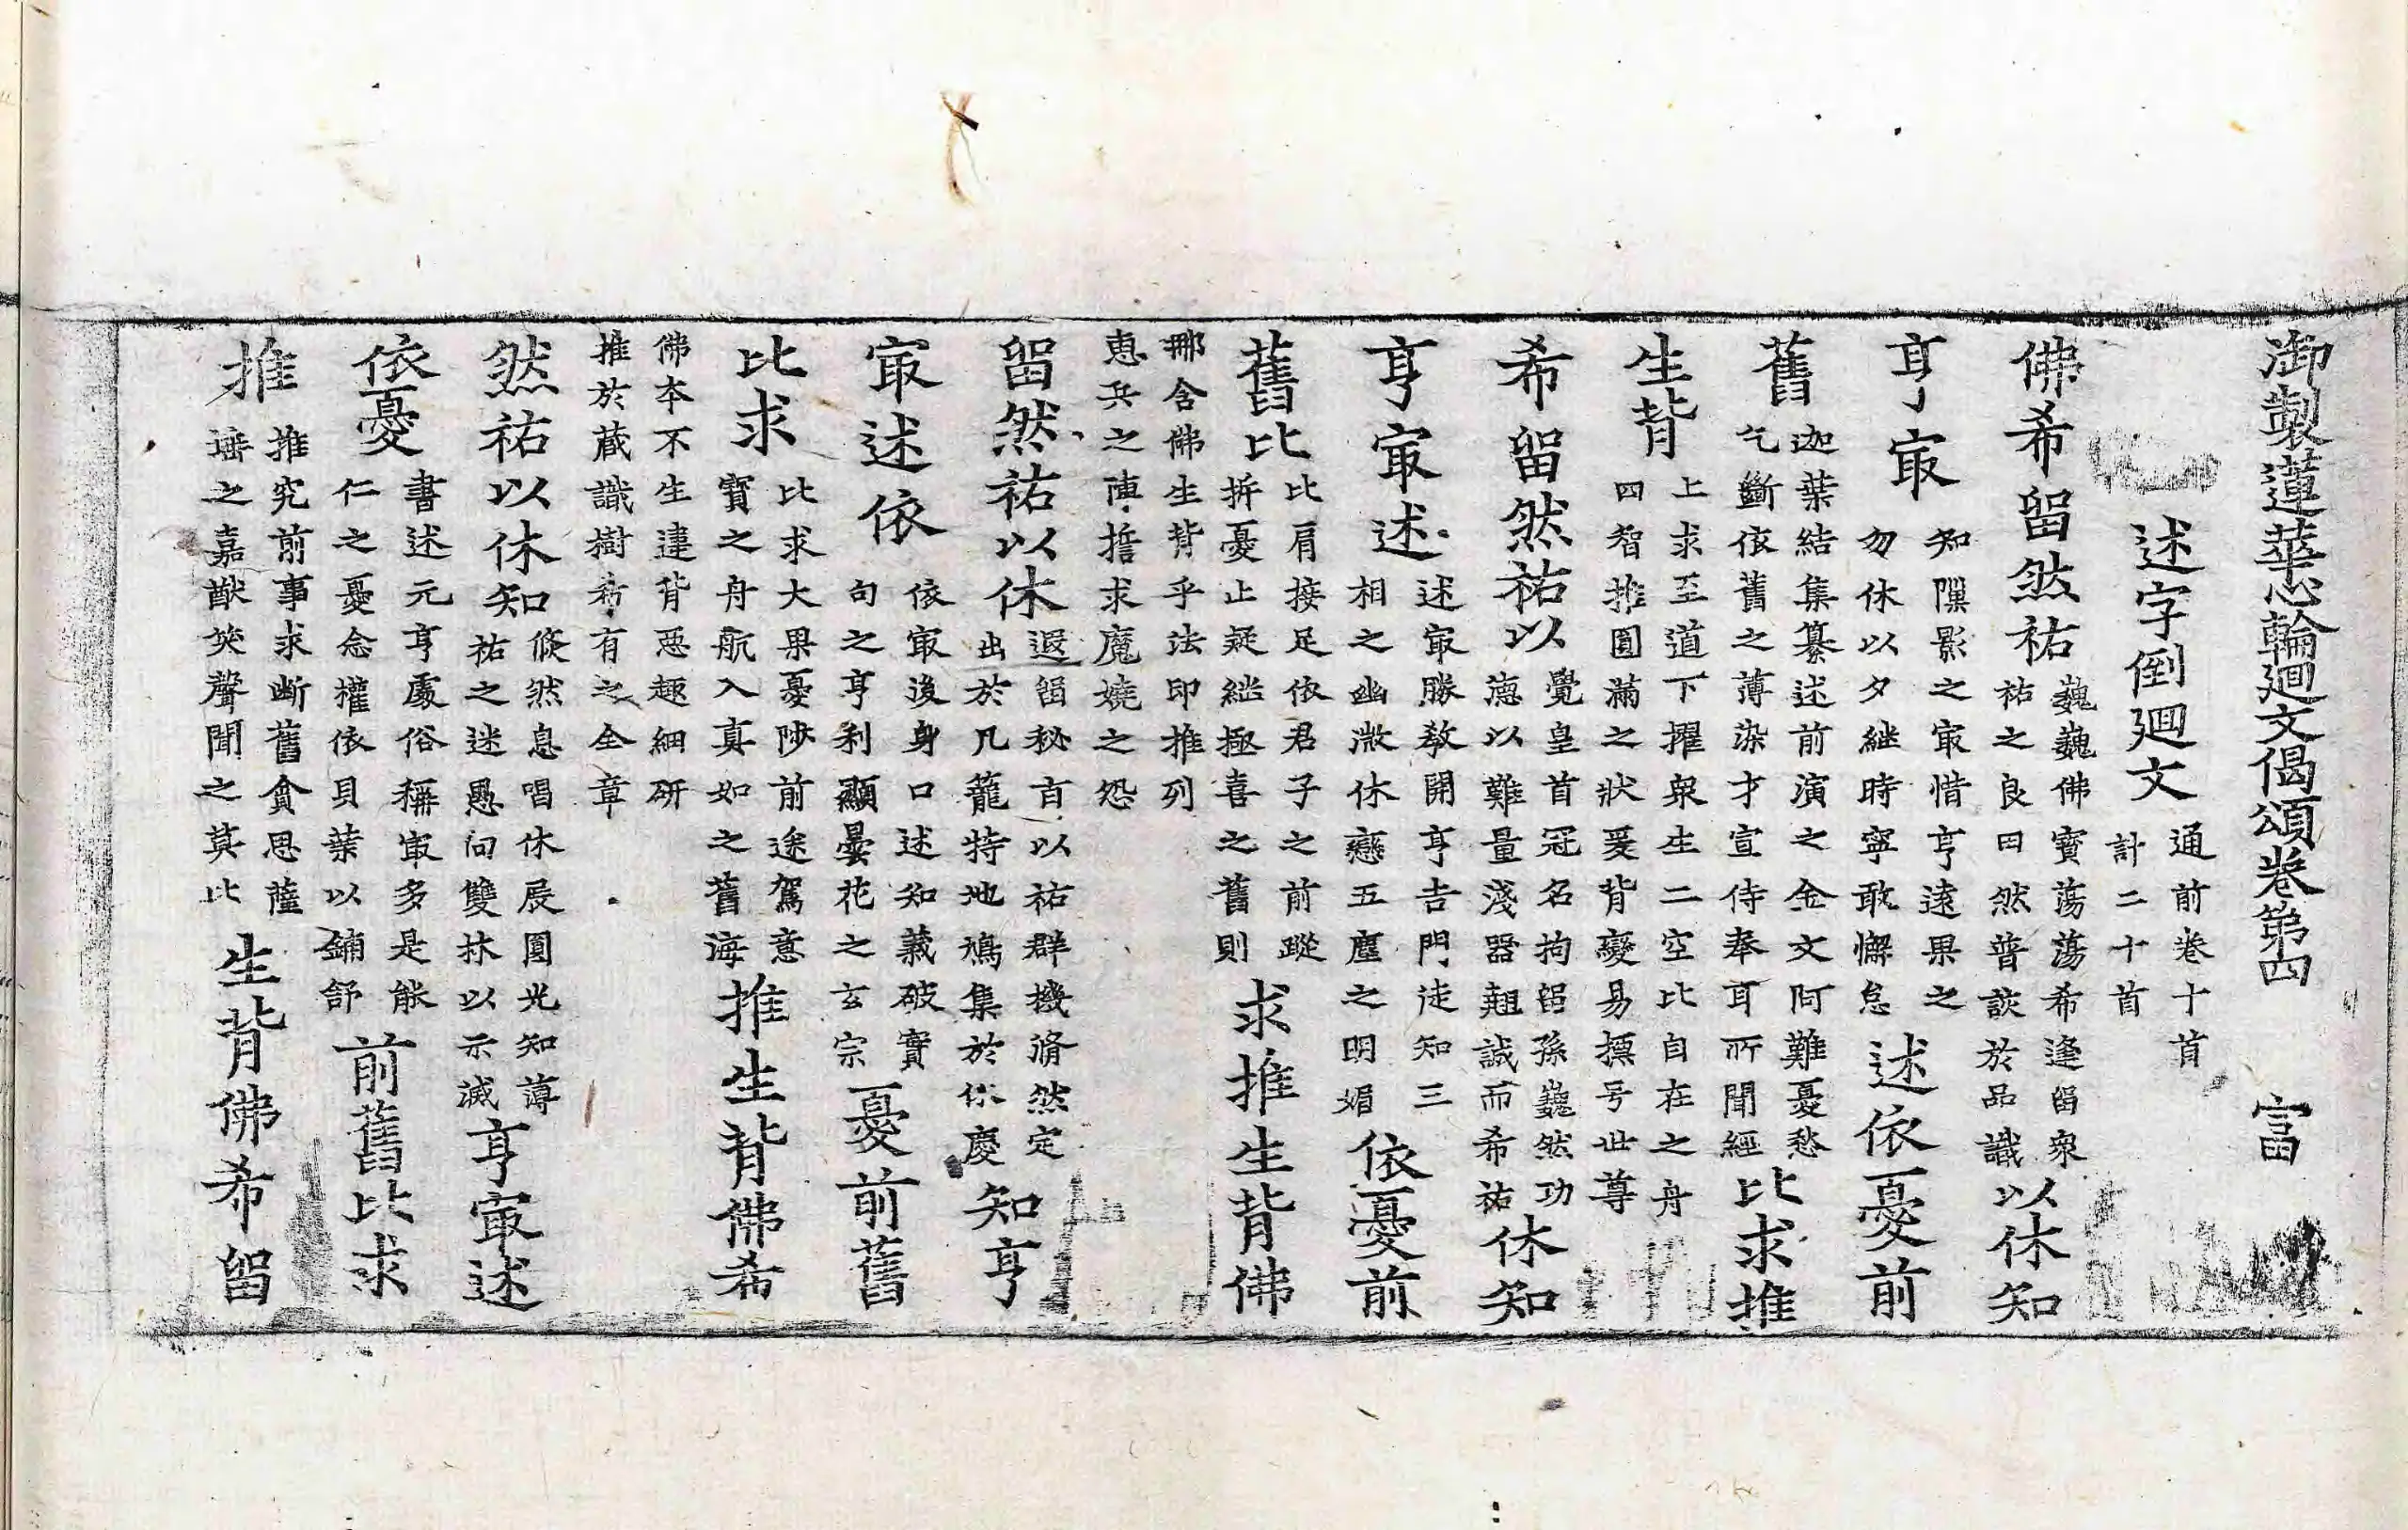 御製蓮華心輪廻文偈頌卷第四 富
述字倒廻文
通前卷十首
計二十首
佛希留然祐
巍巍佛寶蕩蕩希逢留衆
祐之良田然普談於品識
以休知
亨㝡
知隟影之㝡惜亨遠果之
勿休以夕継時寧敢懈怠
述依憂前
舊
迦葉結集纂述前演之金文阿難憂愁
乞斷依舊之薄染才宣侍奉耳所聞經
比求推
生背
上求至道下擢衆生二空比自在之舟
四智推圓滿之狀爰背變易摽号世尊
希留然祐以
覺皇首冠名拘留孫巍然功
德以難量淺器翹誠而希祐
休知
亨㝡述
述㝡勝教開亨吉門徒知三
相之幽微休戀五塵之明媚
依憂前
舊比
比肩接足依君子之前蹤
拆憂止疑継極喜之舊則
求推生背佛
那含佛生背乎法印推列
惠兵之陣擔求魔嬈之怨
留然祐以休
遐留秘百以祐群機脩然定
出於凡籠特地鳩集於休慶
知亨
㝡述依
依㝡後身口述知義破實
句之亨利顯曇花之玄宗
憂前舊
比求
比求大果憂陟前途駕意
寶之舟航入真如之舊海
推生背佛希
佛本不生違背惡趣細研
推於蔵識樹希有之全章
然祐以休知
倐然息唱休展圓光知薄
祐之迷愚向雙林以示滅
亨㝡述
依憂
書述元亨處俗稱㝡多是能
仁之憂念權依貝葉以鋪舒
前舊比求
推
推究前事求断舊貪思薩
埵之嘉猷笑聲聞之莫比
生背佛希留